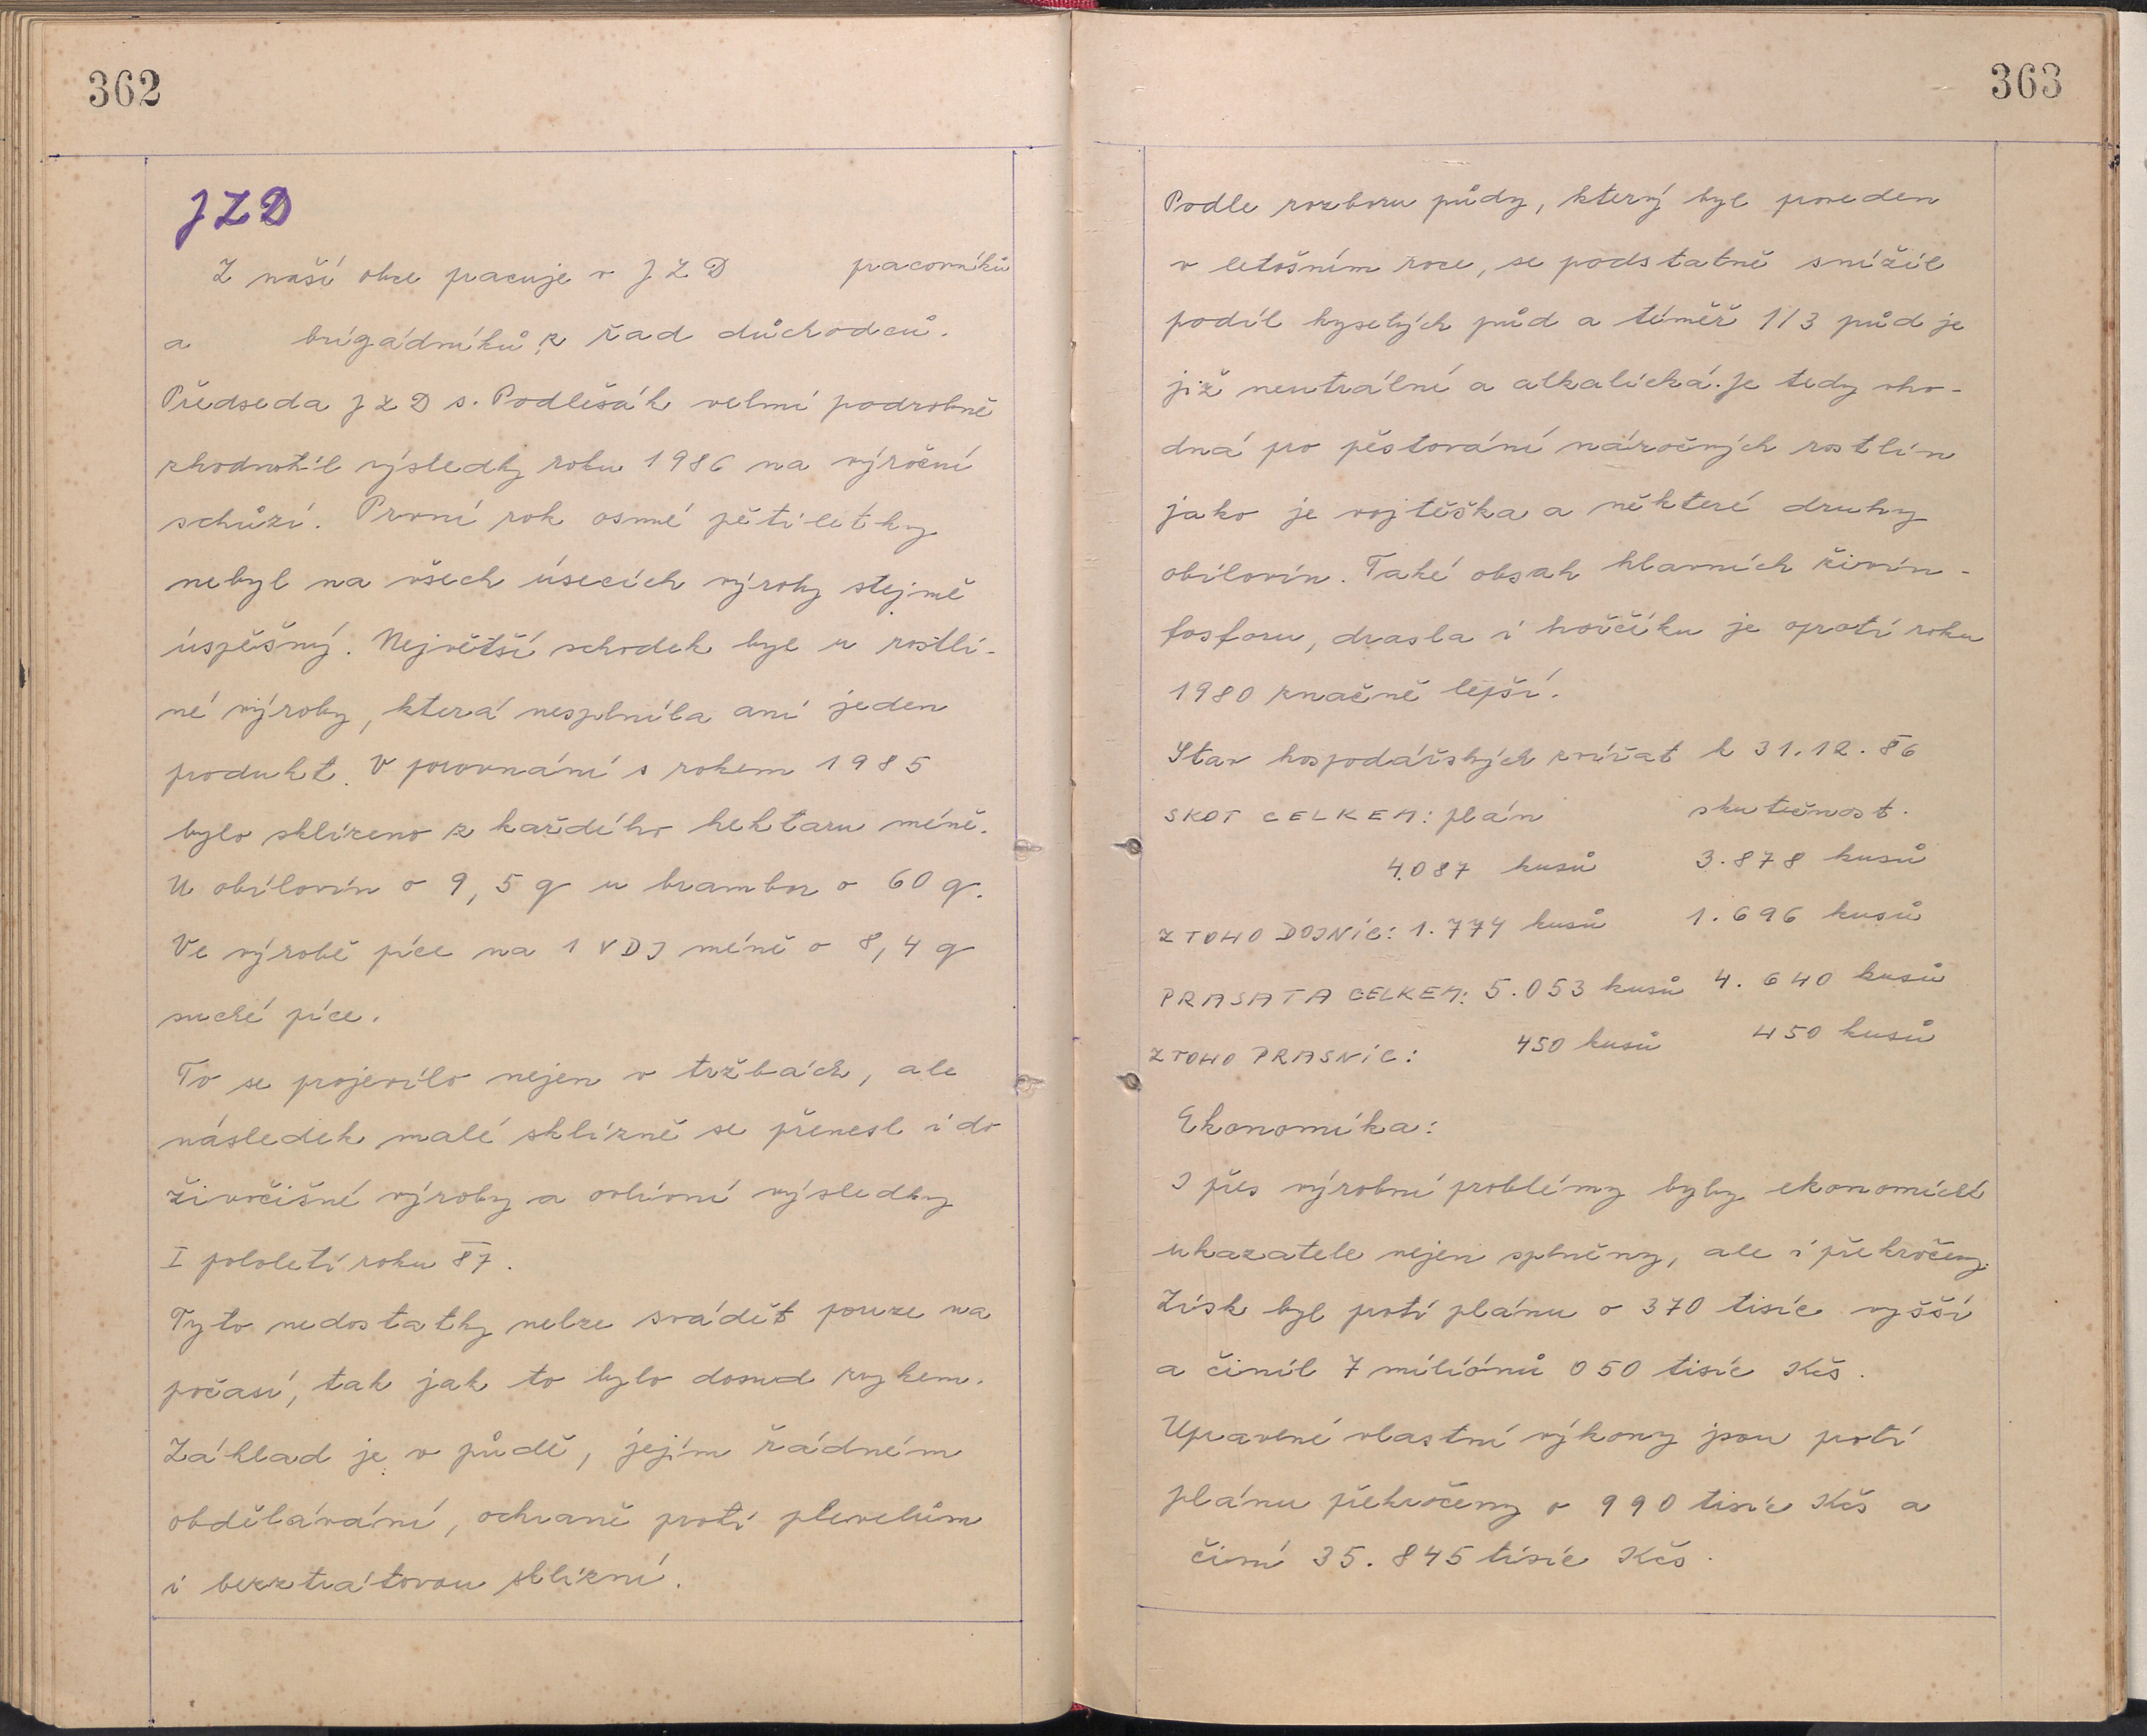 362
JZD
Z naší obce pracuje v JZD pracovníků
a brigádníků z řad důchodců.
Předseda JZD s. Podlešák velmi podrobně
zhodnotil výsledky roku 1986 na výroční
schůzi. První rok osmé pětiletky
nebyl na všech úsecích výroby stejně
úspěšný. Největší schodek byl u rostli-
né výroby, která nesplnila ani jeden
produkt. V porovnání s rokem 1985
bylo sklizeno z každého hektaru méně.
U obilovin o 9,5 q u brambor o 60 q.
Ve výrobě píce na 1 VDJ méně o 8,4 q
suché píce.
To se projevilo nejen v tržbách, ale
následek malé sklizně se přenesl i do
živočišné výroby a ovlivní výsledky
I pololetí roku 87.
Tyto nedostatky nelze svádět pouze na
počasí, tak jak to bylo dosud zvykem.
Základ je v půdě, jejím řádném
obdělávání, ochraně proti plevelům
i bezztrátovou sklizní.
363
Podle rozboru půdy, který byl proveden
v letošním roce, se podstatně snížil
podíl kyselých půd a téměř 1/3 půd je
již neutrální a alkalická. Je tedy vho-
dná pro pěstování náročných rostlin
jako je vojtěška a některé druhy
obilovin. Také obsah hlavních živin -
fosforu, drasla i hořčíku je oproti roku
1980 značně lepší.
Stav hospodářských zvířat k 31.12.86
SKOT CELKEM: plán skutečnost.
4.087 kusů 3.878 kusů
Z TOHO DOJNIC: 1.774 kusů 1.696 kusů
PRASATA CELKEM: 5.053 kusů 4.640 kusů
Z TOHO PRASNIC: 450 kusů 450 kusů
Ekonomika:
I přes výrobní problémy byly ekonomické
ukazatele nejen splněny, ale i překročeny.
Zisk byl proti plánu o 370 tisíc vyšší
a činil 7 miliónů 050 tisíc Kčs.
Upravené vlastní výkony jsou proti
plánu překročeny o 990 tisíc Kčs a
činí 35.845 tisíc Kčs.